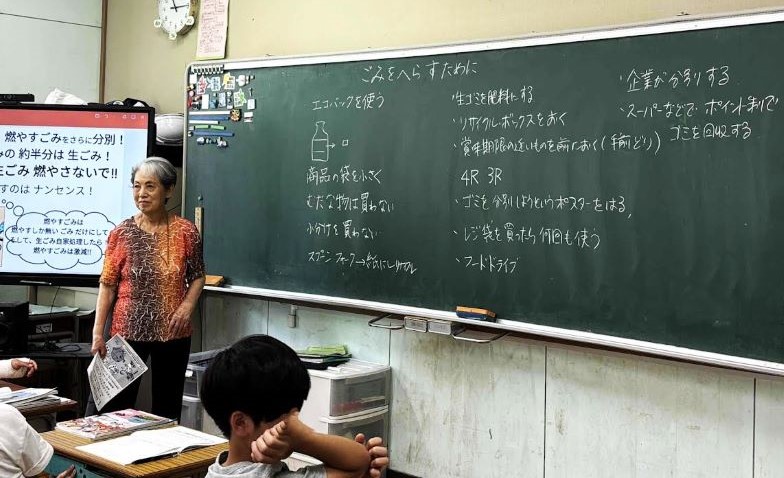 燃やすごみをさらに分別！
みの 約半分は 生ごみ！
生ごみ 燃やさないで!!
すのは ナンセンス！
燃やすごみは
燃やすしか無い ごみ だけにして
そして、生ごみ自家処理したら
燃やすごみは激減!!
ごみをへらすために
エコバックを使う
商品の袋を小さく
むだな物は買わない
小分けを買わない
スプン フォーク→紙に
・生ゴミを肥料にする
・リサイクルボックスをおく
・賞味期限の近いものを前におく(手前どり)
4R 3R
・ゴミを分別しようというポスターをはる。
・レジ袋を買ったら何回も使う
・フードドライブ
・企業が分別する
・スーパーなどで ポイント制で
ゴミを回収する